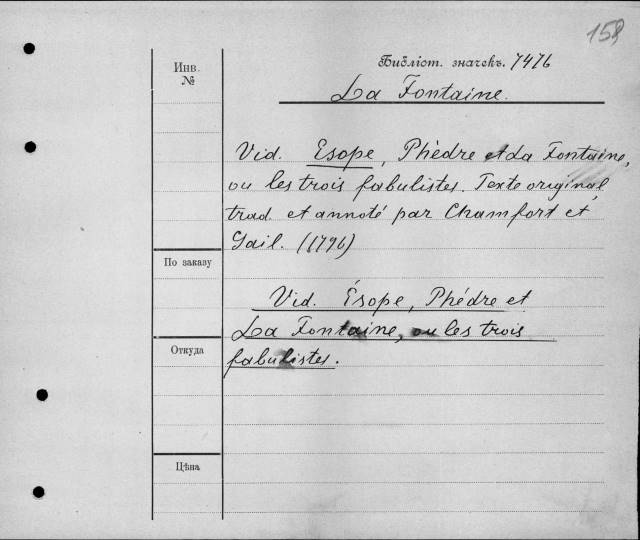 158
Библіот. значекъ. 7476
Инв.
№
La Fontaine.
Vid. Esope, Phèdre et La Fontaine,
ou les trois fabulistes. Texte original,
trad. et annoté par Chamfort et
Gail. (1796)
По заказу
Vid. Ésope, Phédre et
La Fontaine, ou les trois
Откуда
fabulistes.
Цѣна